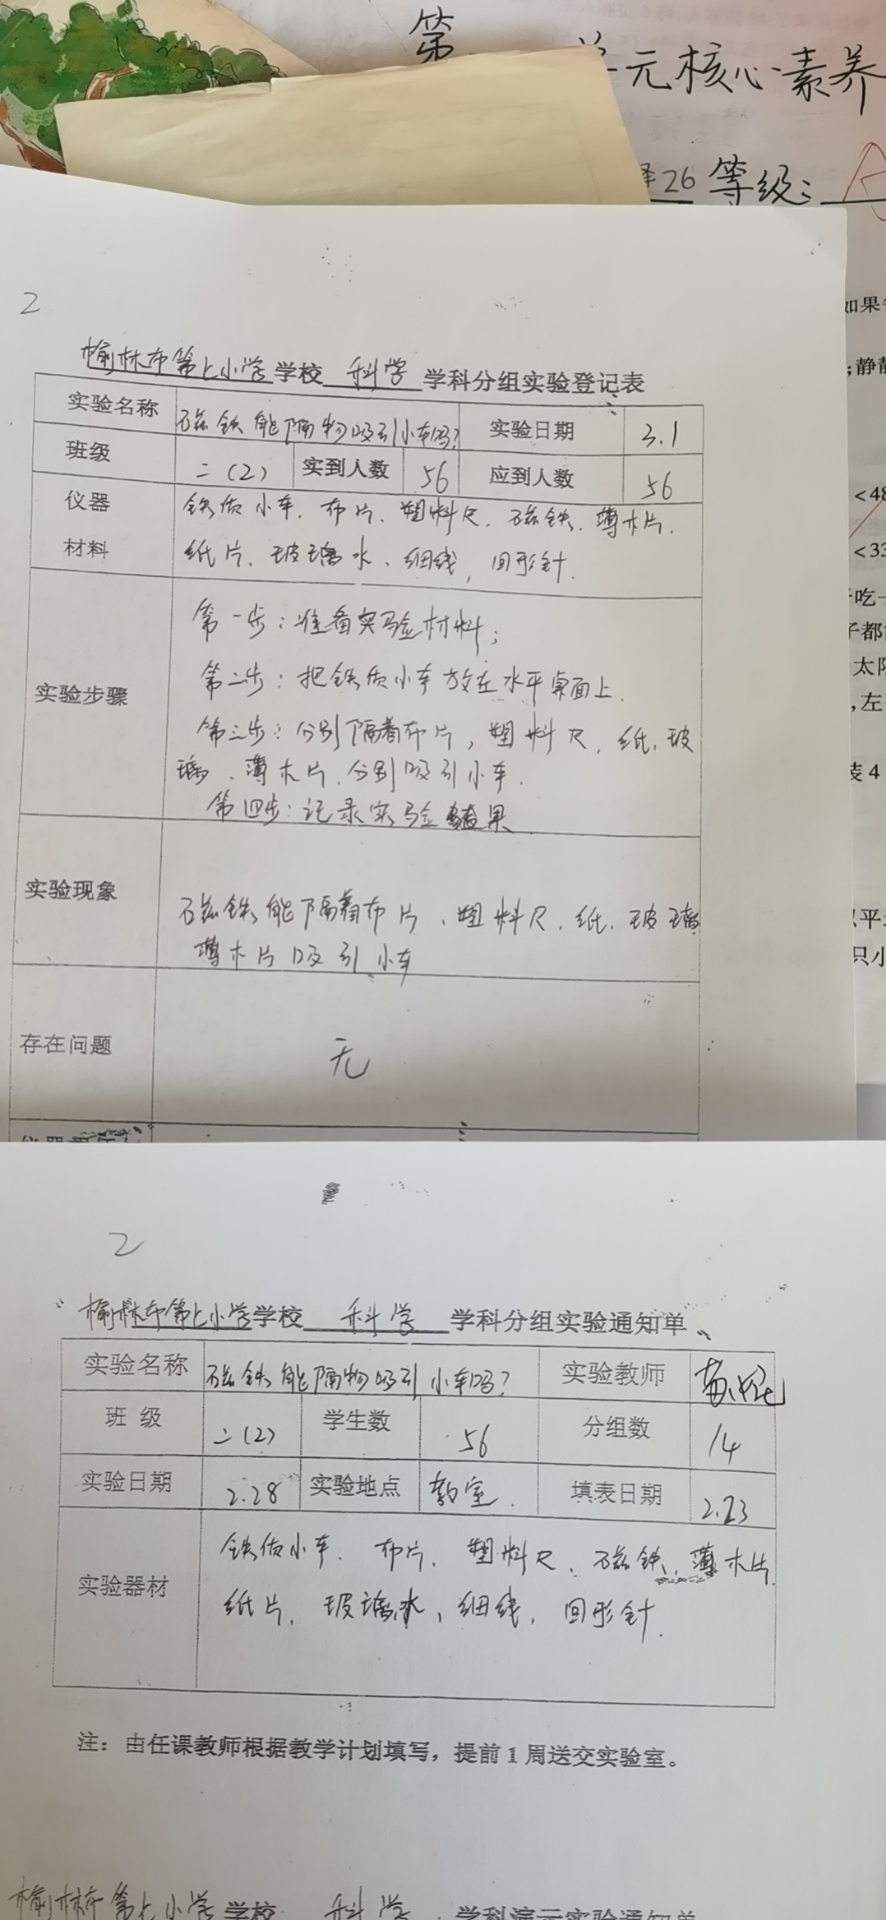 第 单元核心素养
26 等级:
如果
;静静
<48
<33
吃一
子都
太阳
,左
装4
平
只小
2
榆林市第七小学学校 科学 学科分组实验登记表
实验名称 磁铁能隔物吸引小车吗? 实验日期 3.1
班级 二(2) 实到人数 56 应到人数 56
仪器 铁质小车、布片、塑料尺、磁铁、薄木片、
材料 纸片、玻璃水、细线,回形针.
第一步:准备实验材料;
第二步:把铁质小车放在水平桌面上.
实验步骤
第三步:分别隔着布片,塑料尺,纸,玻
璃、薄木片,分别吸引小车.
第四步:记录实验结果
实验现象
磁铁能隔着布片、塑料尺、纸、玻璃
薄木片吸引小车
存在问题 无
2
榆林市第七小学学校 科学 学科分组实验通知单
实验名称 磁铁能隔物吸引小车吗? 实验教师
班 级 二(2) 学生数 56 分组数 14
实验日期 2.28 实验地点 教室. 填表日期 2.23
铁质小车、布片、塑料尺、磁铁、薄木片
实验器材
纸片、玻璃水,细线,回形针.
注:由任课教师根据教学计划填写,提前1周送交实验室。
榆林市第七小学学校 科学 学科演示实验通知单